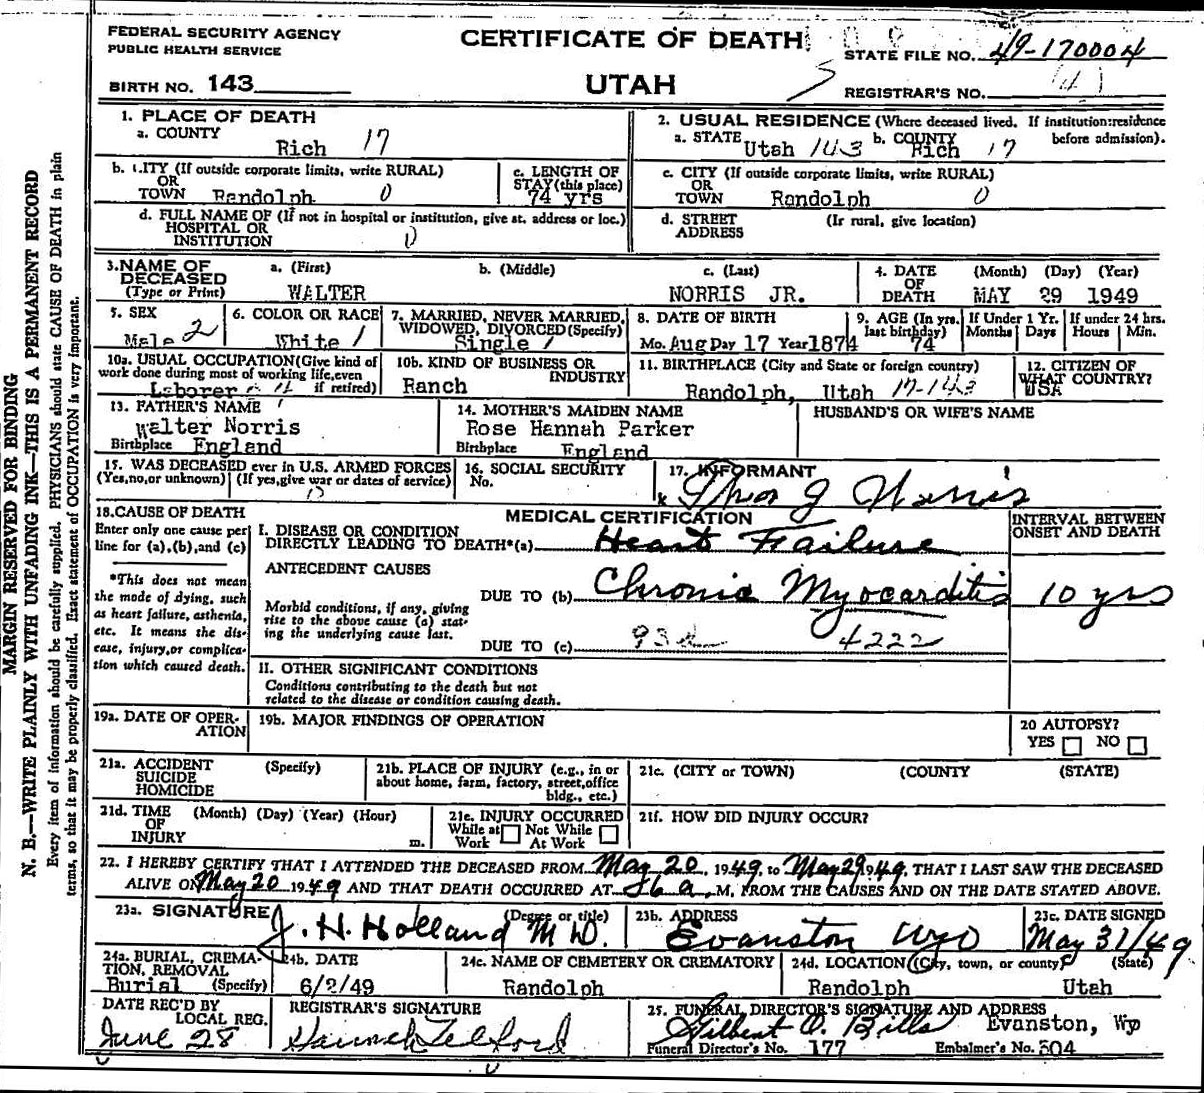 FEDERAL SECURITY AGENCY
PUBLIC HEALTH SERVICE
BIRTH NO. 143
CERTIFICATE OF DEATH
UTAH
STATE FILE NO. 49-170004
REGISTRAR'S NO. 4
1. PLACE OF DEATH
a. COUNTY
Rich 17
2. USUAL RESIDENCE (Where deceased lived. If institution:residence before admission).
a. STATE Utah 143 b. COUNTY Rich 17
b. CITY (If outside corporate limits, write RURAL)
OR
TOWN Randolph 0
c. LENGTH OF
STAY (this place)
74 yrs
c. CITY (If outside corporate limits, write RURAL)
OR
TOWN Randolph 0
d. FULL NAME OF (If not in hospital or institution, give st. address or loc.)
HOSPITAL OR
INSTITUTION 0
d. STREET (Ir rural, give location)
ADDRESS
3.NAME OF
DECEASED
(Type or Print)
a. (First) b. (Middle) c. (Last)
WALTER NORRIS JR.
4. DATE
OF
DEATH
(Month) (Day) (Year)
MAY 29 1949
5. SEX
Male 2
6. COLOR OR RACE
White 1
7. MARRIED, NEVER MARRIED,
WIDOWED, DIVORCED (Specify)
Single 1
8. DATE OF BIRTH
Mo. Aug Day 17 Year 1874
9. AGE (In yrs.
last birthday)
74
If Under 1 Yr.
Months Days
If under 24 hrs.
Hours Min.
10a. USUAL OCCUPATION (Give kind of
work done during most of working life, even
if retired)
Laborer
10b. KIND OF BUSINESS OR
INDUSTRY
Ranch
11. BIRTHPLACE (City and State or foreign country)
Randolph, Utah 17-143
12. CITIZEN OF
WHAT COUNTRY?
USA
13. FATHER'S NAME
Walter Norris
Birthplace England
14. MOTHER'S MAIDEN NAME
Rose Hannah Parker
Birthplace England
HUSBAND'S OR WIFE'S NAME
15. WAS DECEASED ever in U.S. ARMED FORCES
(Yes,no,or unknown) (If yes,give war or dates of service)
0
16. SOCIAL SECURITY
No.
17. INFORMANT
x Thos J Norris
18.CAUSE OF DEATH
Enter only one cause per
line for (a),(b),and (c)
*This does not mean
the mode of dying, such
as heart failure, asthenia,
etc. It means the dis-
ease, injury,or complica-
tion which caused death.
MEDICAL CERTIFICATION
I. DISEASE OR CONDITION
DIRECTLY LEADING TO DEATH*(a) Heart Failure
INTERVAL BETWEEN
ONSET AND DEATH
ANTECEDENT CAUSES
DUE TO (b) Chronic Myocarditis 10 yrs
Morbid conditions, if any, giving
rise to the above cause (a) stat-
ing the underlying cause last.
DUE TO (c) 93d 4222
II. OTHER SIGNIFICANT CONDITIONS
Conditions contributing to the death but not
related to the disease or condition causing death.
19a. DATE OF OPER-
ATION
19b. MAJOR FINDINGS OF OPERATION
20 AUTOPSY?
YES NO
21a. ACCIDENT (Specify)
SUICIDE
HOMICIDE
21b. PLACE OF INJURY (e.g., in or
about home, farm, factory, street,office
bldg., etc.)
21c. (CITY or TOWN) (COUNTY (STATE)
21d. TIME (Month) (Day) (Year) (Hour)
OF
INJURY m.
21e. INJURY OCCURRED
While at Not While
Work At Work
21f. HOW DID INJURY OCCUR?
22. I HEREBY CERTIFY THAT I ATTENDED THE DECEASED FROM May 20, 1949, to May 29 1949, THAT I LAST SAW THE DECEASED
ALIVE ON May 20 1949 AND THAT DEATH OCCURRED AT M, FROM THE CAUSES AND ON THE DATE STATED ABOVE.
23a. SIGNATURE (Degree or title)
J. H. Holland M D.
23b. ADDRESS
Evanston Wyo
23c. DATE SIGNED
May 31/49
24a. BURIAL, CREMA-
TION, REMOVAL
Burial (Specify)
24b. DATE
6/2/49
24c. NAME OF CEMETERY OR CREMATORY
Randolph
24d. LOCATION (City, town, or county) (State)
Randolph Utah
DATE REC'D BY
LOCAL REG.
June 28
REGISTRAR'S SIGNATURE
25. FUNERAL DIRECTOR'S SIGNATURE AND ADDRESS
Gilbert O. Bills Evanston, Wyo
Funeral Director's No. 177 Embalmer's No. 504
MARGIN RESERVED FOR BINDING
N. B.—WRITE PLAINLY WITH UNFADING INK—THIS IS A PERMANENT RECORD
Every item of information should be carefully supplied. PHYSICIANS should state CAUSE OF DEATH in plain
terms, so that it may be properly classified. Exact statement of OCCUPATION is very important.